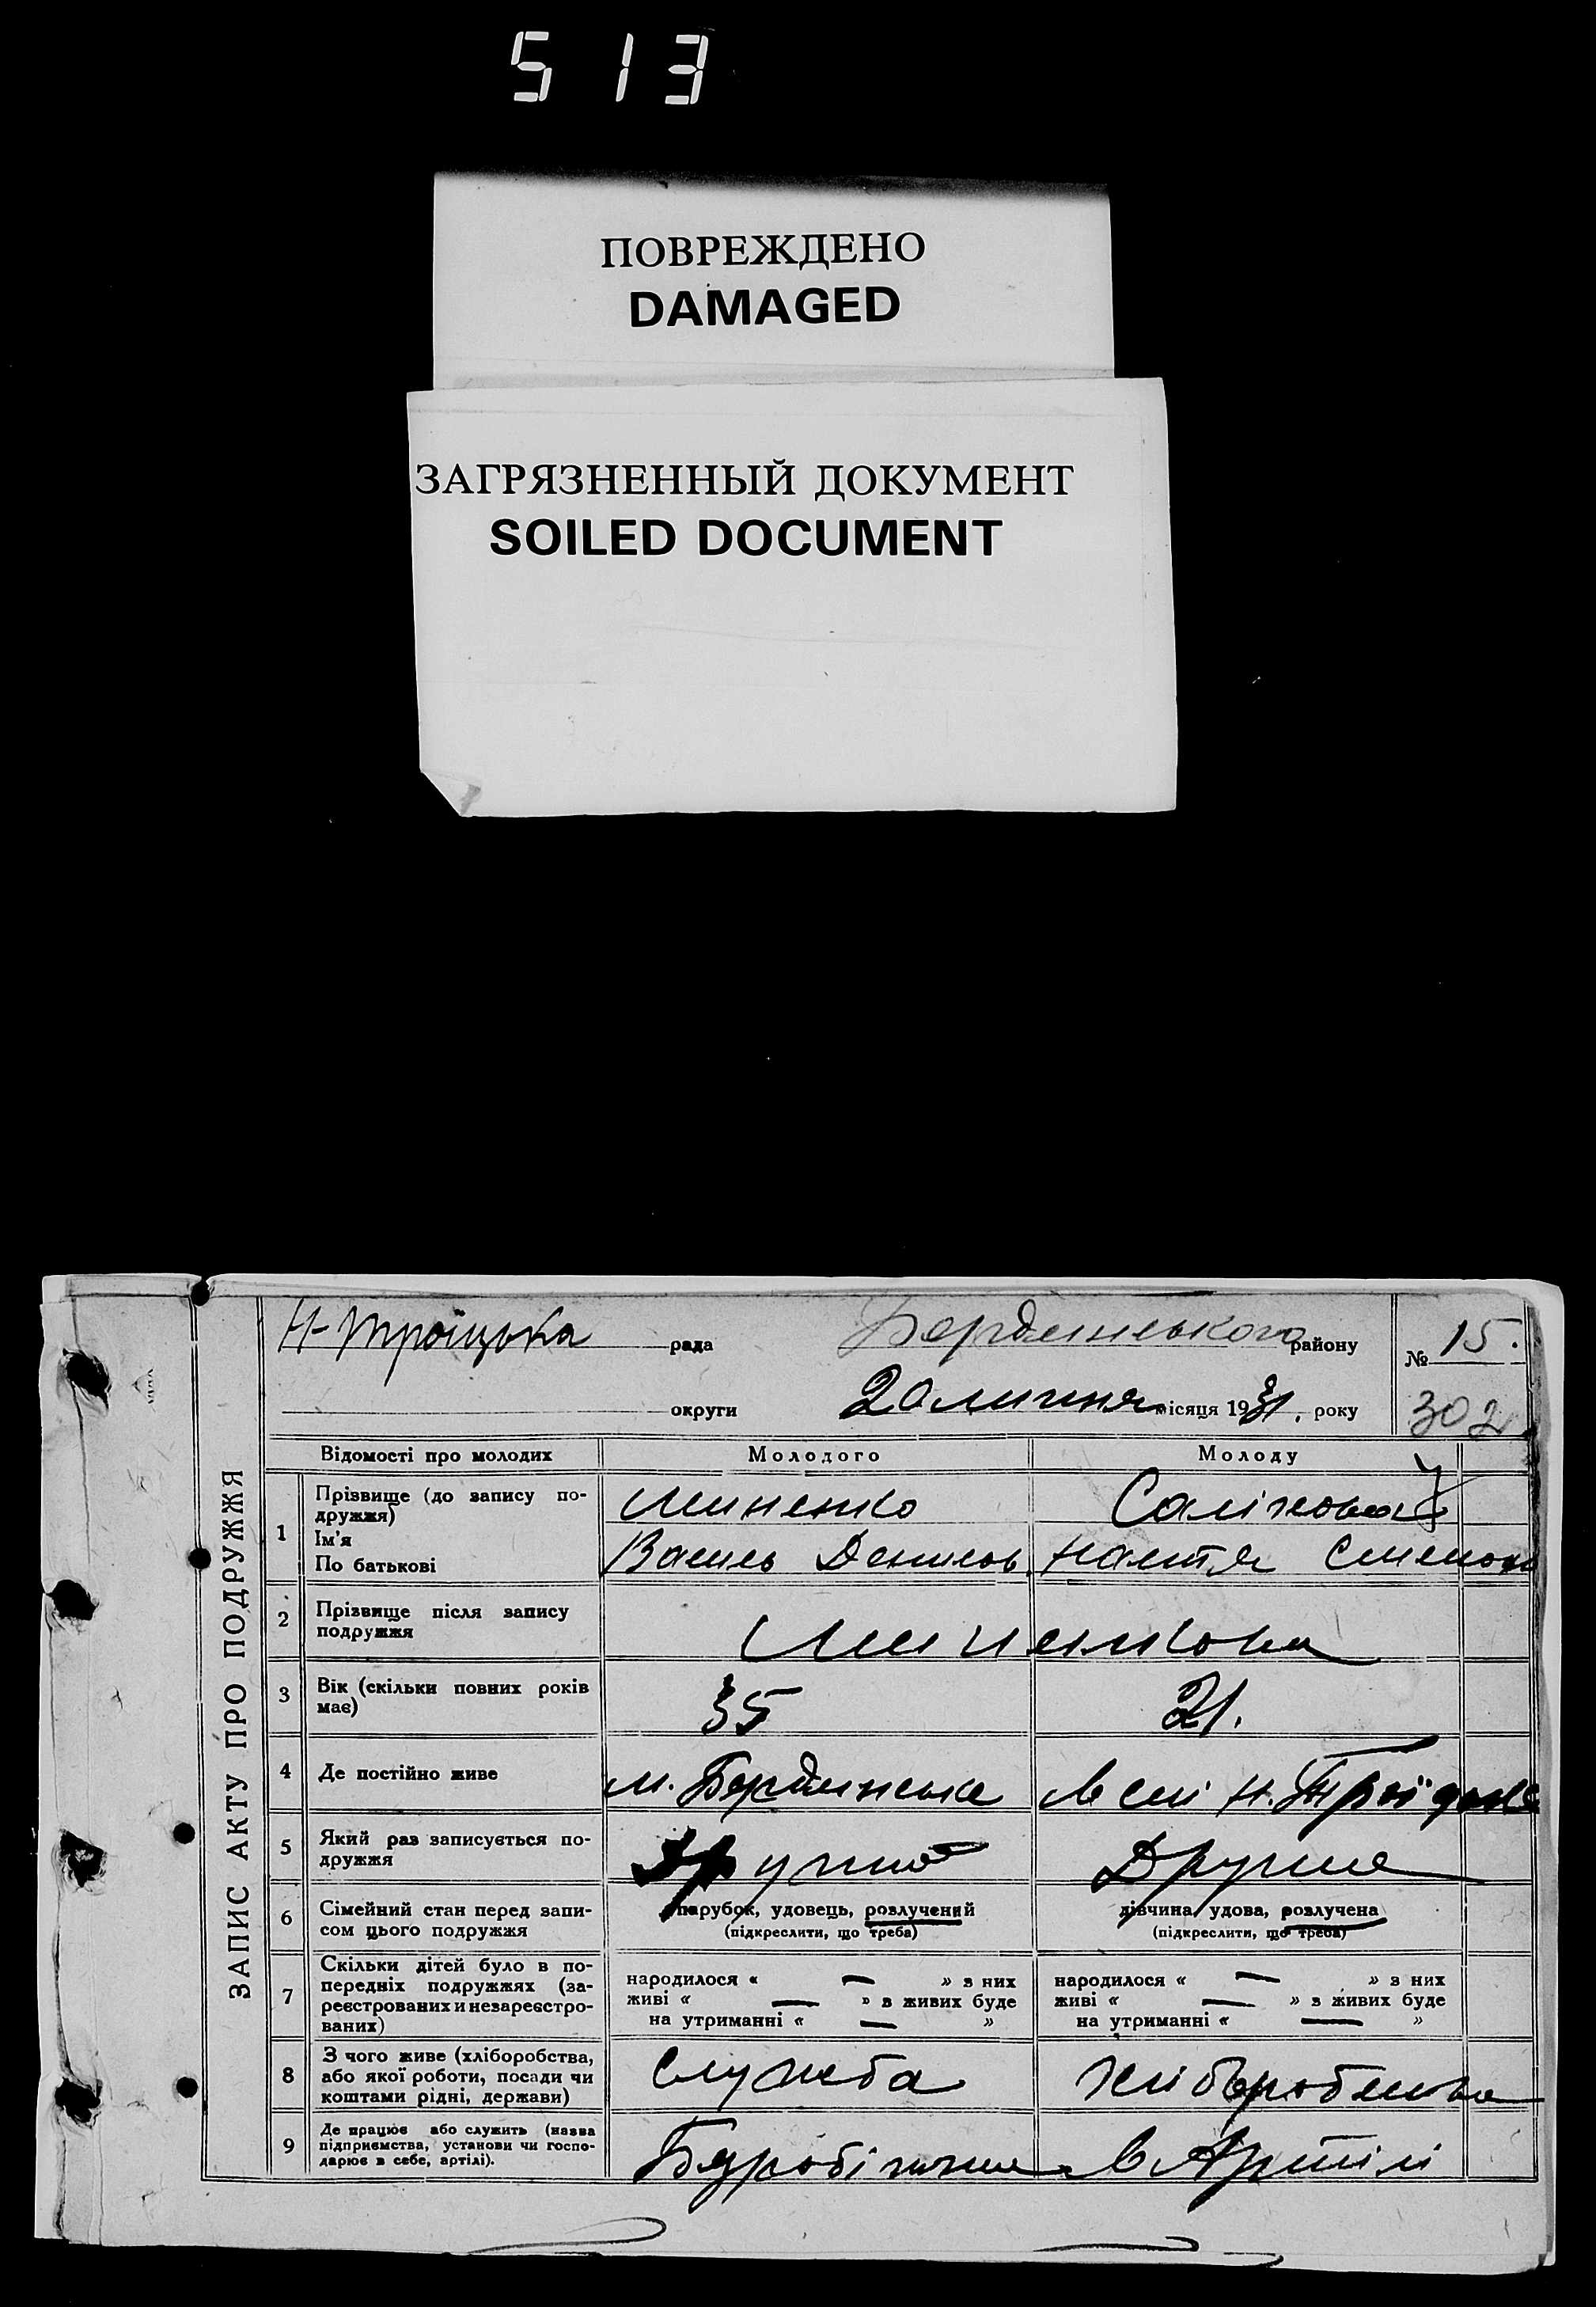 513
ПОВРЕЖДЕНО
DAMAGED
ЗАГРЯЗНЕННЫЙ ДОКУМЕНТ
SOILED DOCUMENT
ЗАПИС АКТУ ПРО ПОДРУЖЖЯ
Н-Троїцька рада Бердянського району № 15.
округи 20 липня місяця 1931. року 302
Відомості про молодих Молодого Молоду
1 Прізвище (до запису подружжя) Миненко
Ім'я
По батькові Василь Денисов. Настя
2 Прізвище після запису
подружжя
3 Вік (скільки повних років
має) 35 21.
4 Де постійно живе м. Бердянське в селі Н.
5 Який раз записується по-
дружжя Друге
6 Сімейний стан перед запи-
сом цього подружжя
парубок, удовець, розлучений дівчина, удова, розлучена
(підкреслити, що треба) (підкреслити, що треба)
7 Скільки дітей було в по-
передніх подружжях (за-
реєстрованих и незареєстро-
ваних)
народилося « — » з них народилося « — » з них
живі « — » в живих буде живі « — » з живих буде
на утриманні « — » на утриманні « — »
8 З чого живе (хліборобства,
або якої роботи, посади чи
коштами рідні, держави) служба
9 Де працює або служить (назва
підприємства, установи чи госпо-
дарює в себе, артілі). в Артілі